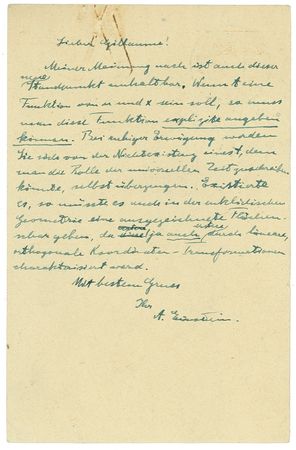 Lieber Guillaume!
Meiner Meinung nach ist auch dieser
neue
Standpunkt unhaltbar. Wenn t eine
Funktion von und x sein soll, so muss
man diese Funktion explizite angeben
können. Bei ruhiger Erwägung werden
Sie sich von der Nichtexistenz eines t, dem
man die Rolle der universellen Zeit zuschreiben
könnte, selbst überzeugen. Existierte
es, so müsste es auch in der euklidischen
Geometrie eine ausgezeichnete Flächen-
schar geben, da ja auch durch lineare,
orthogonale Koordinaten-Transformationen
charakterisiert werd.
Mit bestem Gruss
Ihr
A. Einstein.